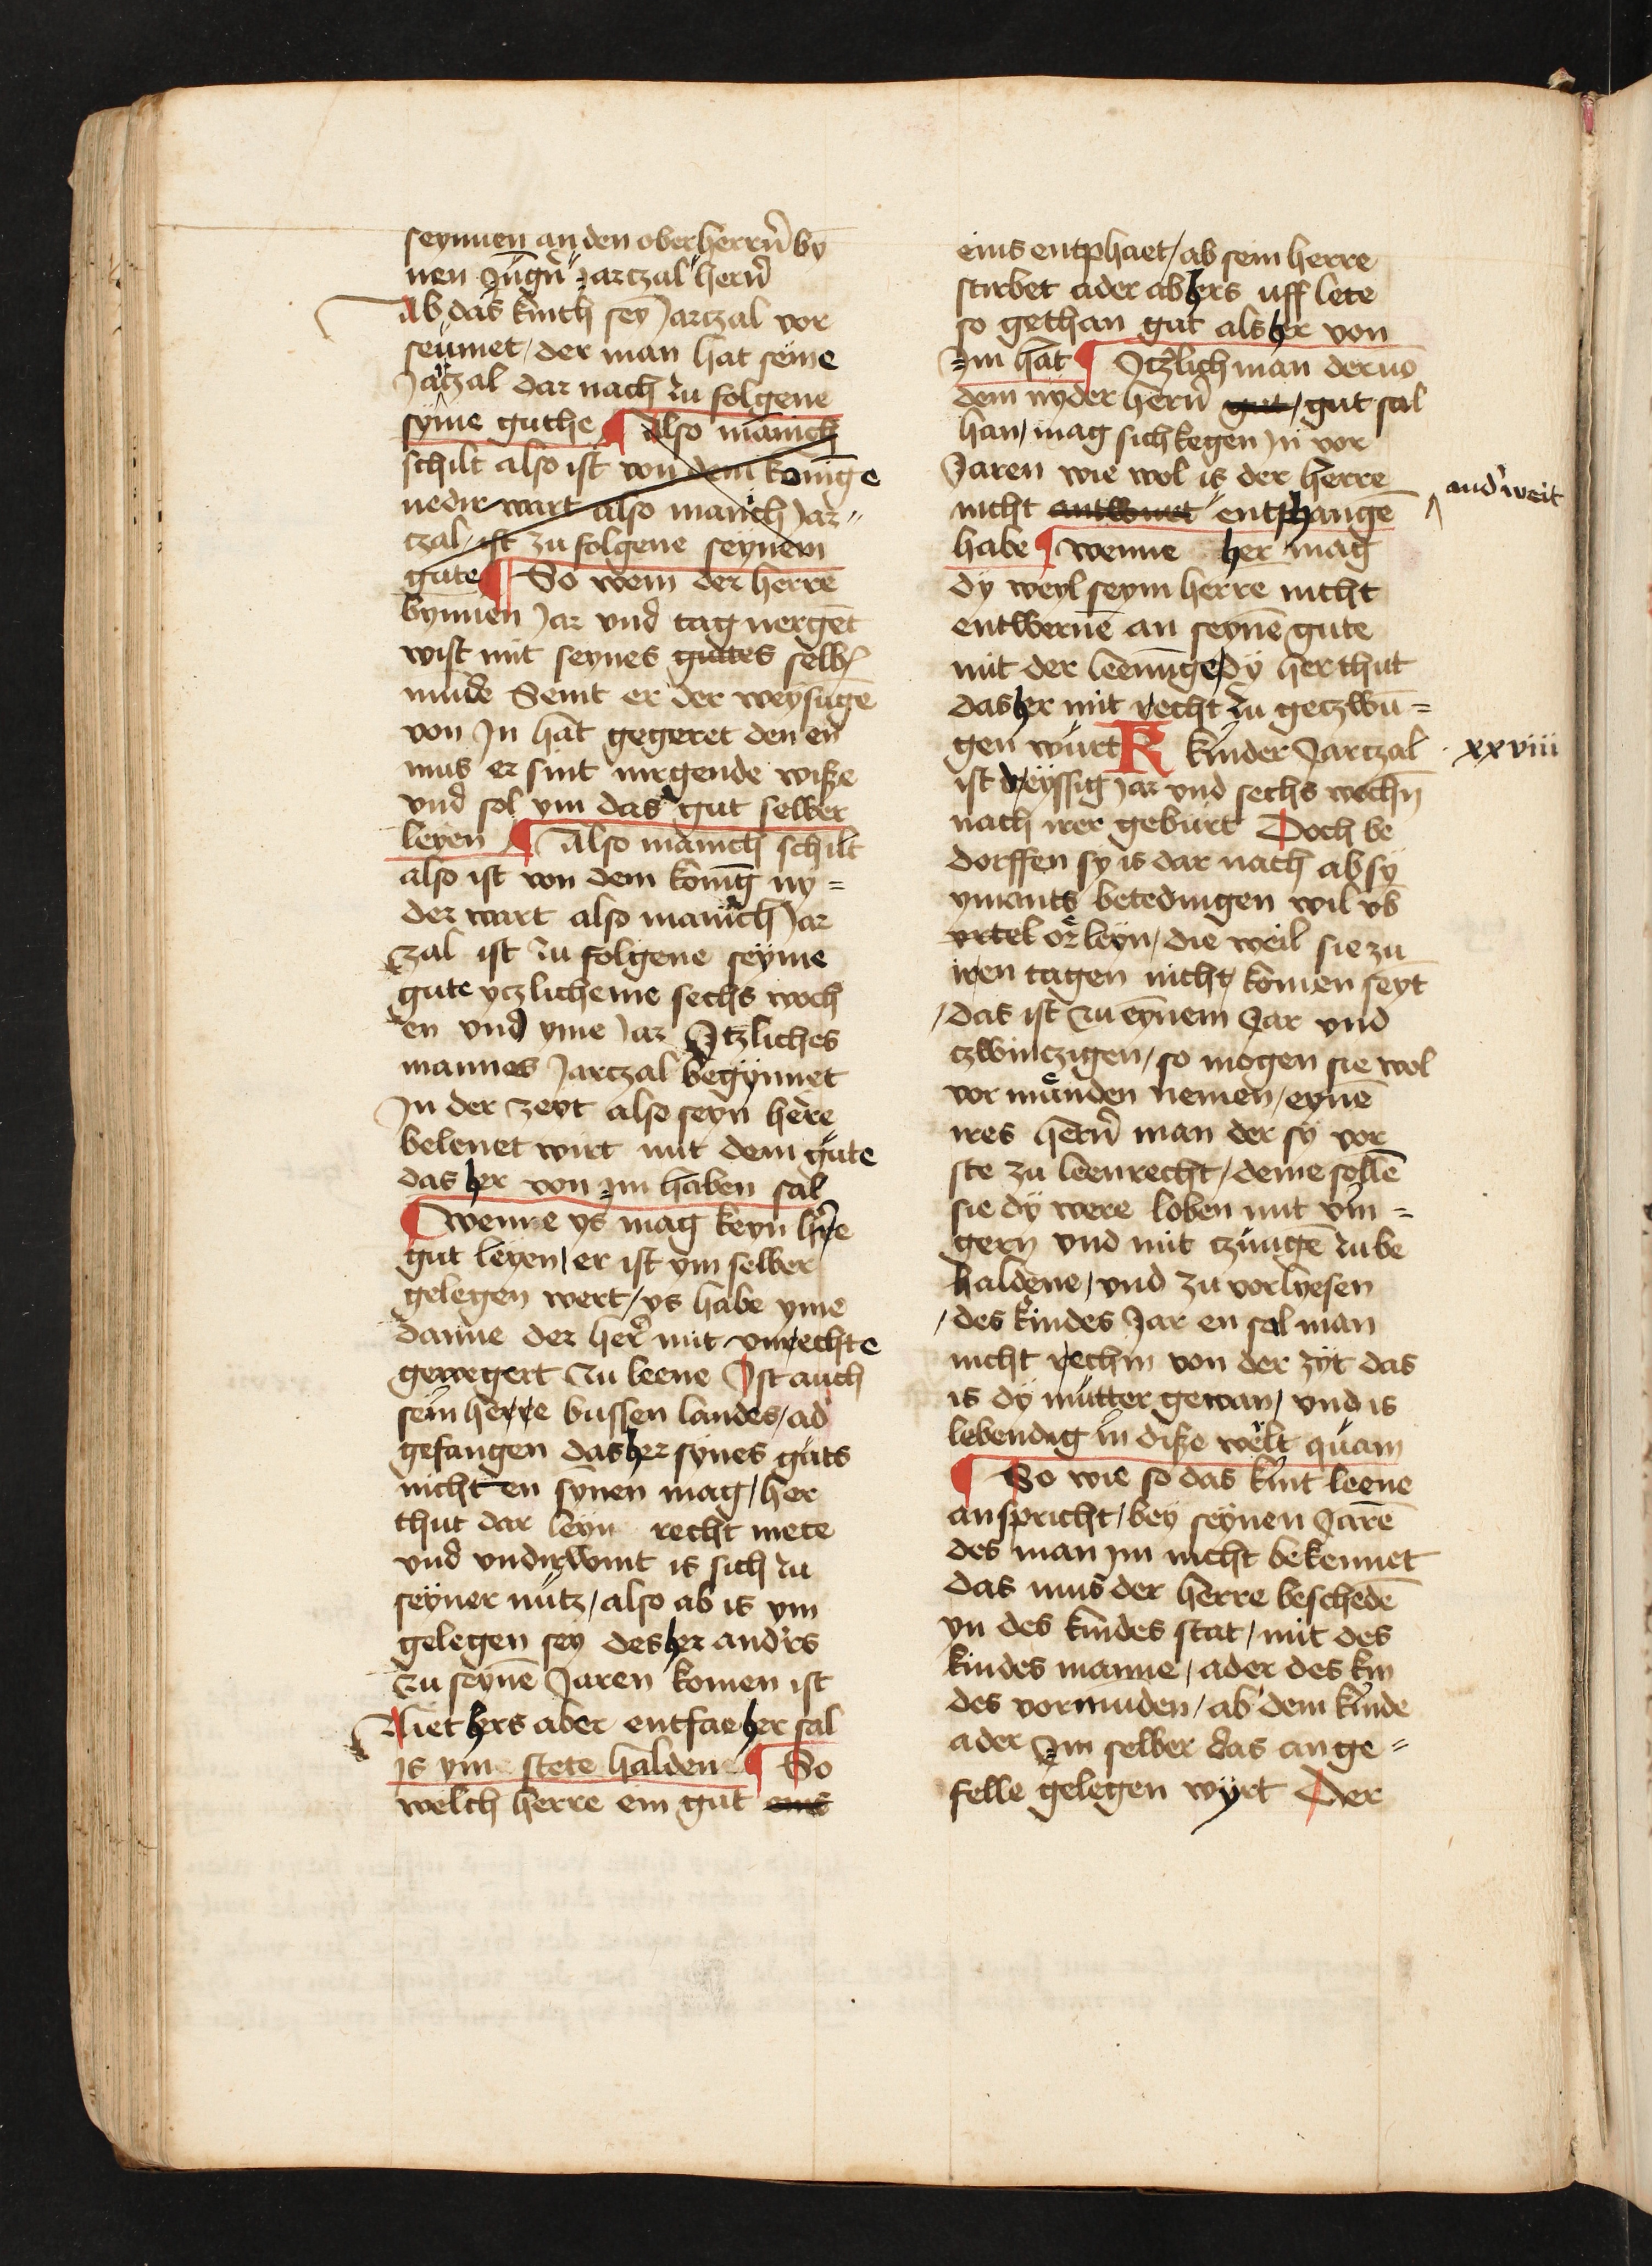 seynnen an den oberherrn̄ by
nen Jugn̄ Jarczal hern̄
Ab das kinth sey Jarczal vor
seumet / der man hat seine
Jarczal dar nach zu folgene
syme guthe ¶ Also manich
schilt also ist von dem konige
nedir wart also manich Jar
czal / ist zu folgene seynem
gute ¶ So wem der herre
bynnen Jar vnd tag nergēt
wist mit seynes gutes selb
mude Seint er der weysūge
von Jn hat gegeret den en
mus er sint nirgende wiße
vnd sol ym das gut selber
leyen ¶ Also manich schilt
also ist von dem konig ny =
der wart also manich Jar
czal ist zu folgene seyme
gute yczlicheme sechs woch
en vnd yme Jar Itzliches
mannes Jarczal begynnet
Jn der zeyt also seyn here
belenet wirt mit dem gute
das her von im haben sal
¶ wenne ys mag keyn hr̄e
gut leyen / er ist ym selber
gelegen wert / ys habe yme
danne der her mit vnrechte
gewegert zu leene Ist auch
sein herre bussen landes / ad
gefangen das her synes guts
nicht en synen mag / her
thut dar leyn recht mete
vnd vndirwint is sich zu
seyner nutz / also ab is ym
gelegen sey des her anders
zu seynē Jaren komen ist
Liet hers aber entfae her sal
is ym stete halden ¶ So
welch herre ein gut eins
eins entphaet / ab sein herre
stirbet ader ab hers uff lete
so gethan gut als her von
Jm hat ¶ Itzlich man der vō
dem nyder hern̄ gut / gut sal
han / mag sich kegen Jn vor
Jaren wie wol is der herre
nicht entphangē
and'weit
habe ¶ wenne her mag
dy weyl seym herre nicht
entwernē an seynē gute
mit der leenūge dy her thut
das her mit recht zu geczwū =
gen wurt K kinder Jarczal
xxviii
ist dreyssig Jar vnd sechs wochn̄
nach irer geburt Doch be
dorffen sy is dar nach ab sy
ymants betedingen wil vb
vrtel or leyn / die weil sie zu
iren tagen nicht komen seyt
/ das ist zu eynem Jar vnd
czwinczigen / so mogen sie wol
vor manden nemen / eynē
ires hern̄ man der sy vor
ste zu leenrecht / deme sellē
sie dy were loben mit vin =
gern vnd mit czungē zu be
haldene / vnd zu vorlyesen
/ des kindes Jar en sal man
nicht rechin von der zyt das
is dy mutter gewan / vnd is
lebendig in diße welt quam
¶ So wie so das kint leene
anspricht / bey seynen Jarē
des man im nicht bekennet
das mus der herre beschedē
yn des kindes stat / mit des
kindes manne / ader des kin
des vormunden / ab dem kinde
ader im selber das ange =
felle gelegen wyrt Der